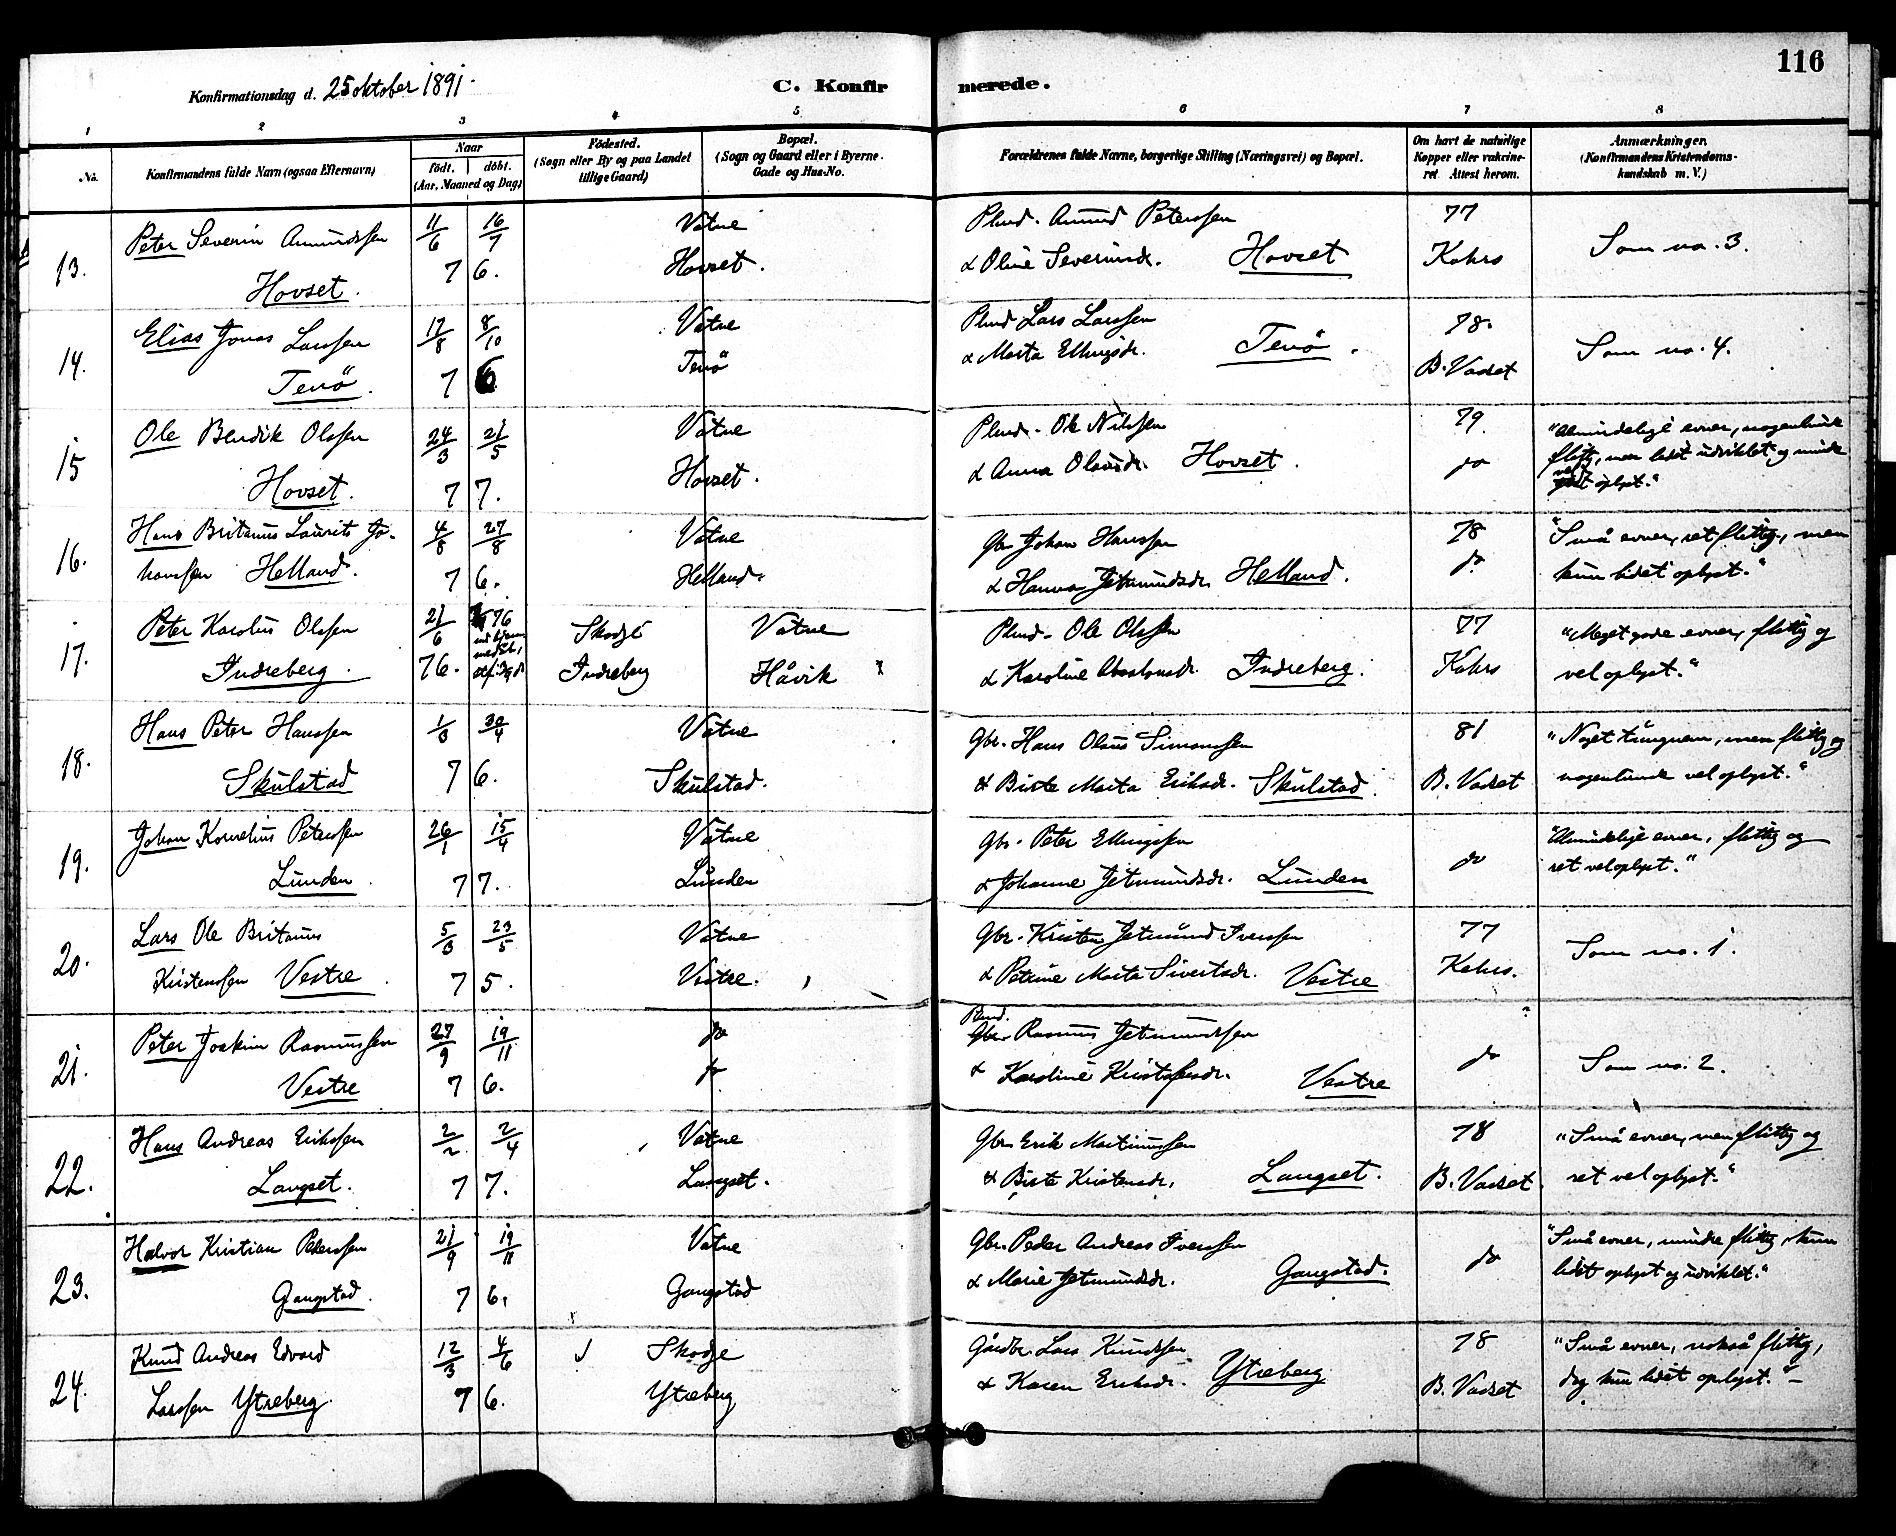 116
Konfirmationsdag d. 25 oktober 1891.
C. Konfirmerede.
1 2 3 4 5 6 7 8
No.
Konfirmandens fulde Navn (ogsaa Efternavn)
Naar
födt. döbt.
(Aar, Maaned og Dag)
Födested.
(Sogn eller By og paa Landet
tillige Gaard)
Bopæl.
(Sogn og Gaard eller i Byerne
Gade og Hus-No.
Forældrenes fulde Navne, borgerlige Stilling (Næringsvei) og Bopæl.
Om havt de naturlige
Kopper eller vakcine-
ret. Attest herom.
Anmærkninger.
(Konfirmandens Kristendoms-
kundskab m. V.)
13. Peter Severin Amundssen 11/6 16/7 Vatne Plmd. Amund Peterssen 77 Som no. 3.
Hovset. 7 6. Hovset. & Oline Severinsd. Hovset Kahrs
14. Elias Jonas Larssen 17/8 8/10 Vatne Plmd Lars Larssen 78. Som no. 4.
Tenö. 7 6 Tenö & Marta Ellingsdr. Tenö. B. Vadset
15. Ole Bendik Olssen 24/3 21/5 Vatne Plmd. Ole Nilssen 79. "Almindelige evner, nogenlunde
flittig, men lidet udviklet og mindre
Hovset. 7 7. Hovset. & Anna Olavsdr. Hovset. do vel oplyst."
16. Hans Britanus Laurits Jo- 4/8 27/8 Vatne Gbr. Johan Hanssen 78 "Små evner, ret flittig, men
hanssen Helland. 7 6. Helland. & Hanna Jetmundsdr. Helland. do kun lidet oplyst."
17. Peter Karolus Olssen 21/6 76 Skodje Vatne Plmd. Ole Olssen 77 "Meget gode evner, flittig og
Indreberg. 76. Indreberg Håvik & Karoline Absalonsdr. Indreberg. Kahrs vel oplyst."
18. Hans Peter Hanssen 1/3 30/4 Vatne Gbr. Hans Olaus Simonssen 81 "Noget tungnem, men flittig og
Skulstad 7 6. Skulstad. & Birte Marta Eriksdr. Skulstad. B. Vadset nogenlunde vel oplyst."
19. Johan Kornelius Peterssen 26/1 15/4 Vatne Gbr. Peter Ellingssen do "Almindelige evner, flittig og
Lunden. 7 7. Lunden & Johanne Jetmundsdr. Lunden ret vel oplyst."
20. Lars Ole Britanus 5/3 23/5 Vatne Gbr. Kristen Jetmund Iverssen 77 Som no. 1.
Kristenssen Vestre. 7 5. Vestre. & Petrine Marta Sivertsdr. Vestre Kahrs.
21. Peter Joakim Rasmussen 27/9 19/11 do Plmd. Rasmus Jetmundssen do Som no. 2.
Vestre 7 6. do & Karoline Kristofersdr. Vestre
22. Hans Andreas Erikssen 2/2 2/4 Vatne Gbr. Erik Martinussen 78 "Små evner, men flittig og
Langset. 7 7. Langset. & Birte Kristensdr. Langset. B. Vadset. ret vel oplyst."
23. Halvor Kristian Pederssen 21/9 19/11 Vatne Gbr. Peder Andreas Iverssen do "Små evner, mindre flittig, kun
Gangstad. 7 6. Gangstad & Marie Jetmundsdr. Gangstad. lidet oplyst og udviklet."
24. Knud Andreas Edvard 12/3 4/6 Skodje Gårdbr. Lars Knudssen 78 "Små evner, nokså flittig,
Larssen Ytreberg. 7 6. Ytreberg & Karen Eriksdr. Ytreberg B. Vadset dog kun lidet oplyst."